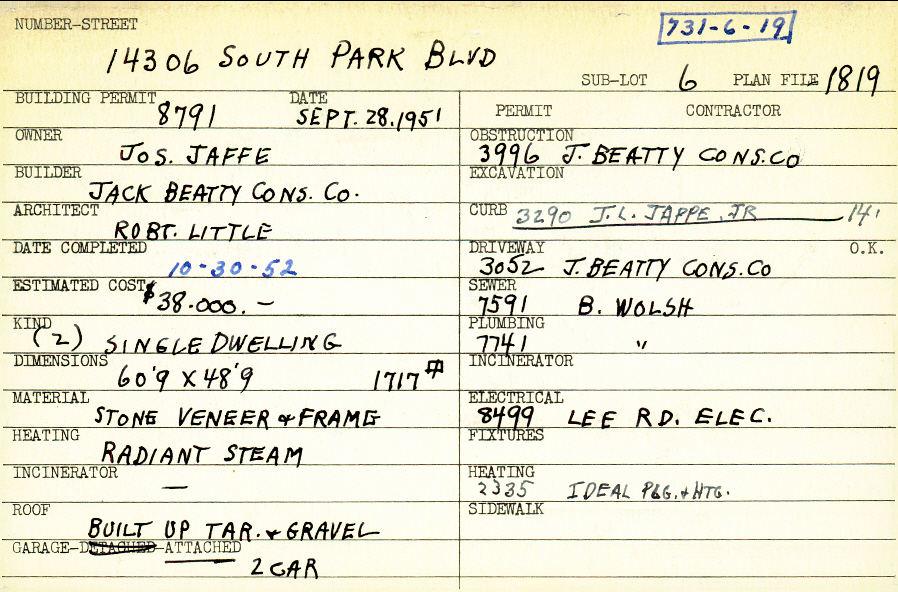 NUMBER-STREET
731-6-19
14306 SOUTH PARK BLVD
SUB-LOT 6 PLAN FILE 1819
BUILDING PERMIT 8791 DATE SEPT. 28.1951
PERMIT CONTRACTOR
OWNER JOS. JAFFE
OBSTRUCTION 3996 J. BEATTY CONS.CO
BUILDER JACK BEATTY CONS. CO.
EXCAVATION
ARCHITECT ROBT. LITTLE
CURB 3290 J.L. JAPPE, JR 14'
DATE COMPLETED 10-30-52
DRIVEWAY 3052 J. BEATTY CONS.CO O.K.
ESTIMATED COST $38.000.-
SEWER 7591 B. WOLSH
KIND (2) SINGLE DWELLING
PLUMBING 7741 "
DIMENSIONS 60'9 X 48'9 1717
INCINERATOR
MATERIAL STONE VENEER & FRAMG
ELECTRICAL 8499 LEE RD. ELEC.
HEATING RADIANT STEAM
FIXTURES
INCINERATOR —
HEATING 2335 IDEAL PLG. & HTG.
ROOF BUILT UP TAR. & GRAVEL
SIDEWALK
GARAGE-DETACHED-ATTACHED 2 CAR